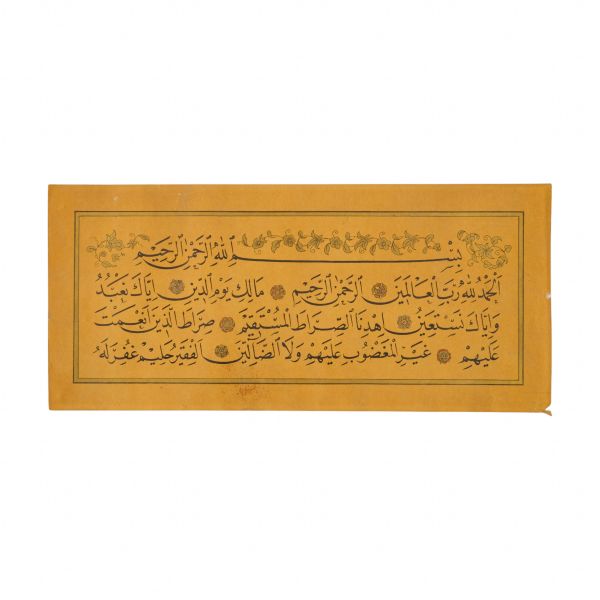 بِسْمِ اللهِ الرَّحْمٰنِ الرَّحِيْمِ
اَلْحَمْدُ لِلّٰهِ رَبِّ الْعَالَمِيْنَ الرَّحْمٰنِ الرَّحِيْمِ مَالِكِ يَوْمِ الدِّيْنِ اِيَّاكَ نَعْبُدُ
وَاِيَّاكَ نَسْتَعِيْنُ اِهْدِنَا الصِّرَاطَ الْمُسْتَقِيْمَ صِرَاطَ الَّذِيْنَ اَنْعَمْتَ
عَلَيْهِمْ غَيْرِ الْمَغْضُوبِ عَلَيْهِمْ وَلَا الضَّالِّيْنَ اَلْفَقِيْرُ حَلِيْمْ غُفِرَ لَهُ